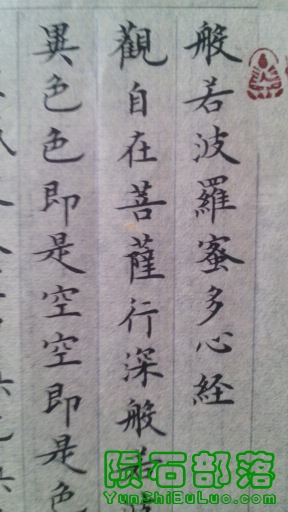 般若波羅蜜多心経
觀自在菩薩行深般若
異色色即是空空即是色
陨石部落
YunShiBuLuo.com